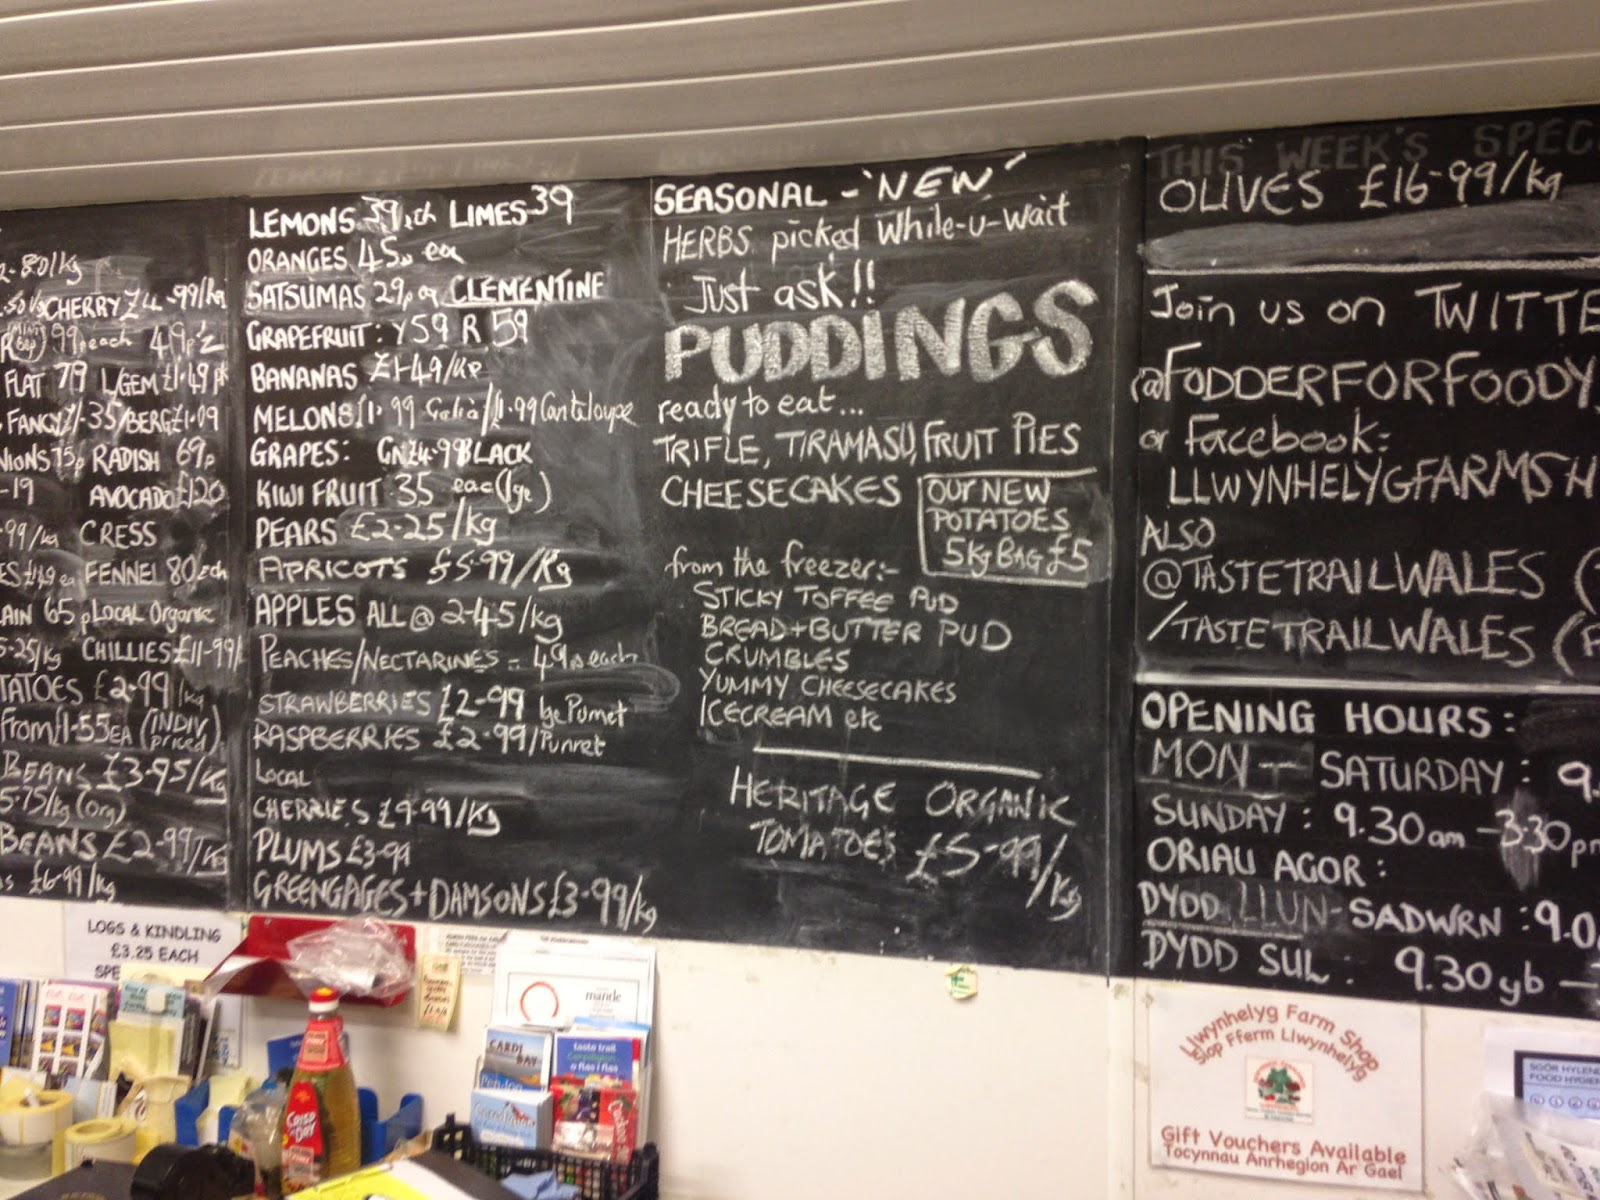 2-80/kg
CHERRY £4-99/kg
99p each 49p
FLAT 79 L/GEM £1-49 pk
FANCY £1-35/BERG £1-09
NIONS 75p RADISH 69p
-19 AVOCADO £1-20
-99/kg CRESS
FENNEL 80 ech
AIN 65p LOCAL Organic
5-25/kg CHILLIES £11-99/
TATOES £2-99/kg
From £1-55EA (INDIV priced)
BEANS £3-95/Kg
5-75/kg (Org)
BEANS £2-99/kg
£6-99/kg
LEMONS 39p ech LIMES 39
ORANGES 45p ea
SATSUMAS 29p ea CLEMENTINE
GRAPEFRUIT: Y59 R 59
BANANAS £1-49/Kg
MELONS £1.99 Galia/£1.99 Canteloupe
GRAPES: GN £4-99 BLACK
KIWI FRUIT 35 eac (lge)
PEARS £2-25/kg
APRICOTS £5-99/Kg
APPLES ALL @ 2-45/kg
PEACHES/NECTARINES - 49p each
STRAWBERRIES £2-99 lge Punnet
RASPBERRIES £2-99/Punnet
LOCAL
CHERRIES £9-99/Kg
PLUMS £3-99
GREENGAGES + DAMSONS £3-99/kg
SEASONAL - 'NEW'
HERBS picked While-u-wait
Just ask!!
PUDDINGS
ready to eat...
TRIFLE, TIRAMASU, FRUIT PIES
CHEESECAKES
OUR NEW
POTATOES
5kg BAG £5
from the freezer:-
STICKY TOFFEE PUD
BREAD+BUTTER PUD
CRUMBLES
YUMMY CHEESECAKES
ICECREAM etc
HERITAGE ORGANIC
TOMATOES £5-99/Kg
THIS WEEK'S SPEC
OLIVES £16-99/kg
Join us on TWITTE
@FODDERFORFOODY
or Facebook:
LLWYNHELYGFARMSH
ALSO
@TASTETRAILWALES (
/TASTETRAILWALES (F
OPENING HOURS:
MON - SATURDAY: 9.
SUNDAY: 9.30am - 3.30pm
ORIAU AGOR:
DYDD LLUN - SADWRN: 9.0
DYDD SUL: 9.30yb -
LOGS & KINDLING
£3.25 EACH
SPE
mande
CARDI
BAY
taste trail
Ceredigion
CRISP
'N DRY
Llwynhelyg Farm Shop
Siop Fferm Llwynhelyg
Gift Vouchers Available
Tocynnau Anrhegion Ar Gael
SGÔR HYLEN
FOOD HYGIEN